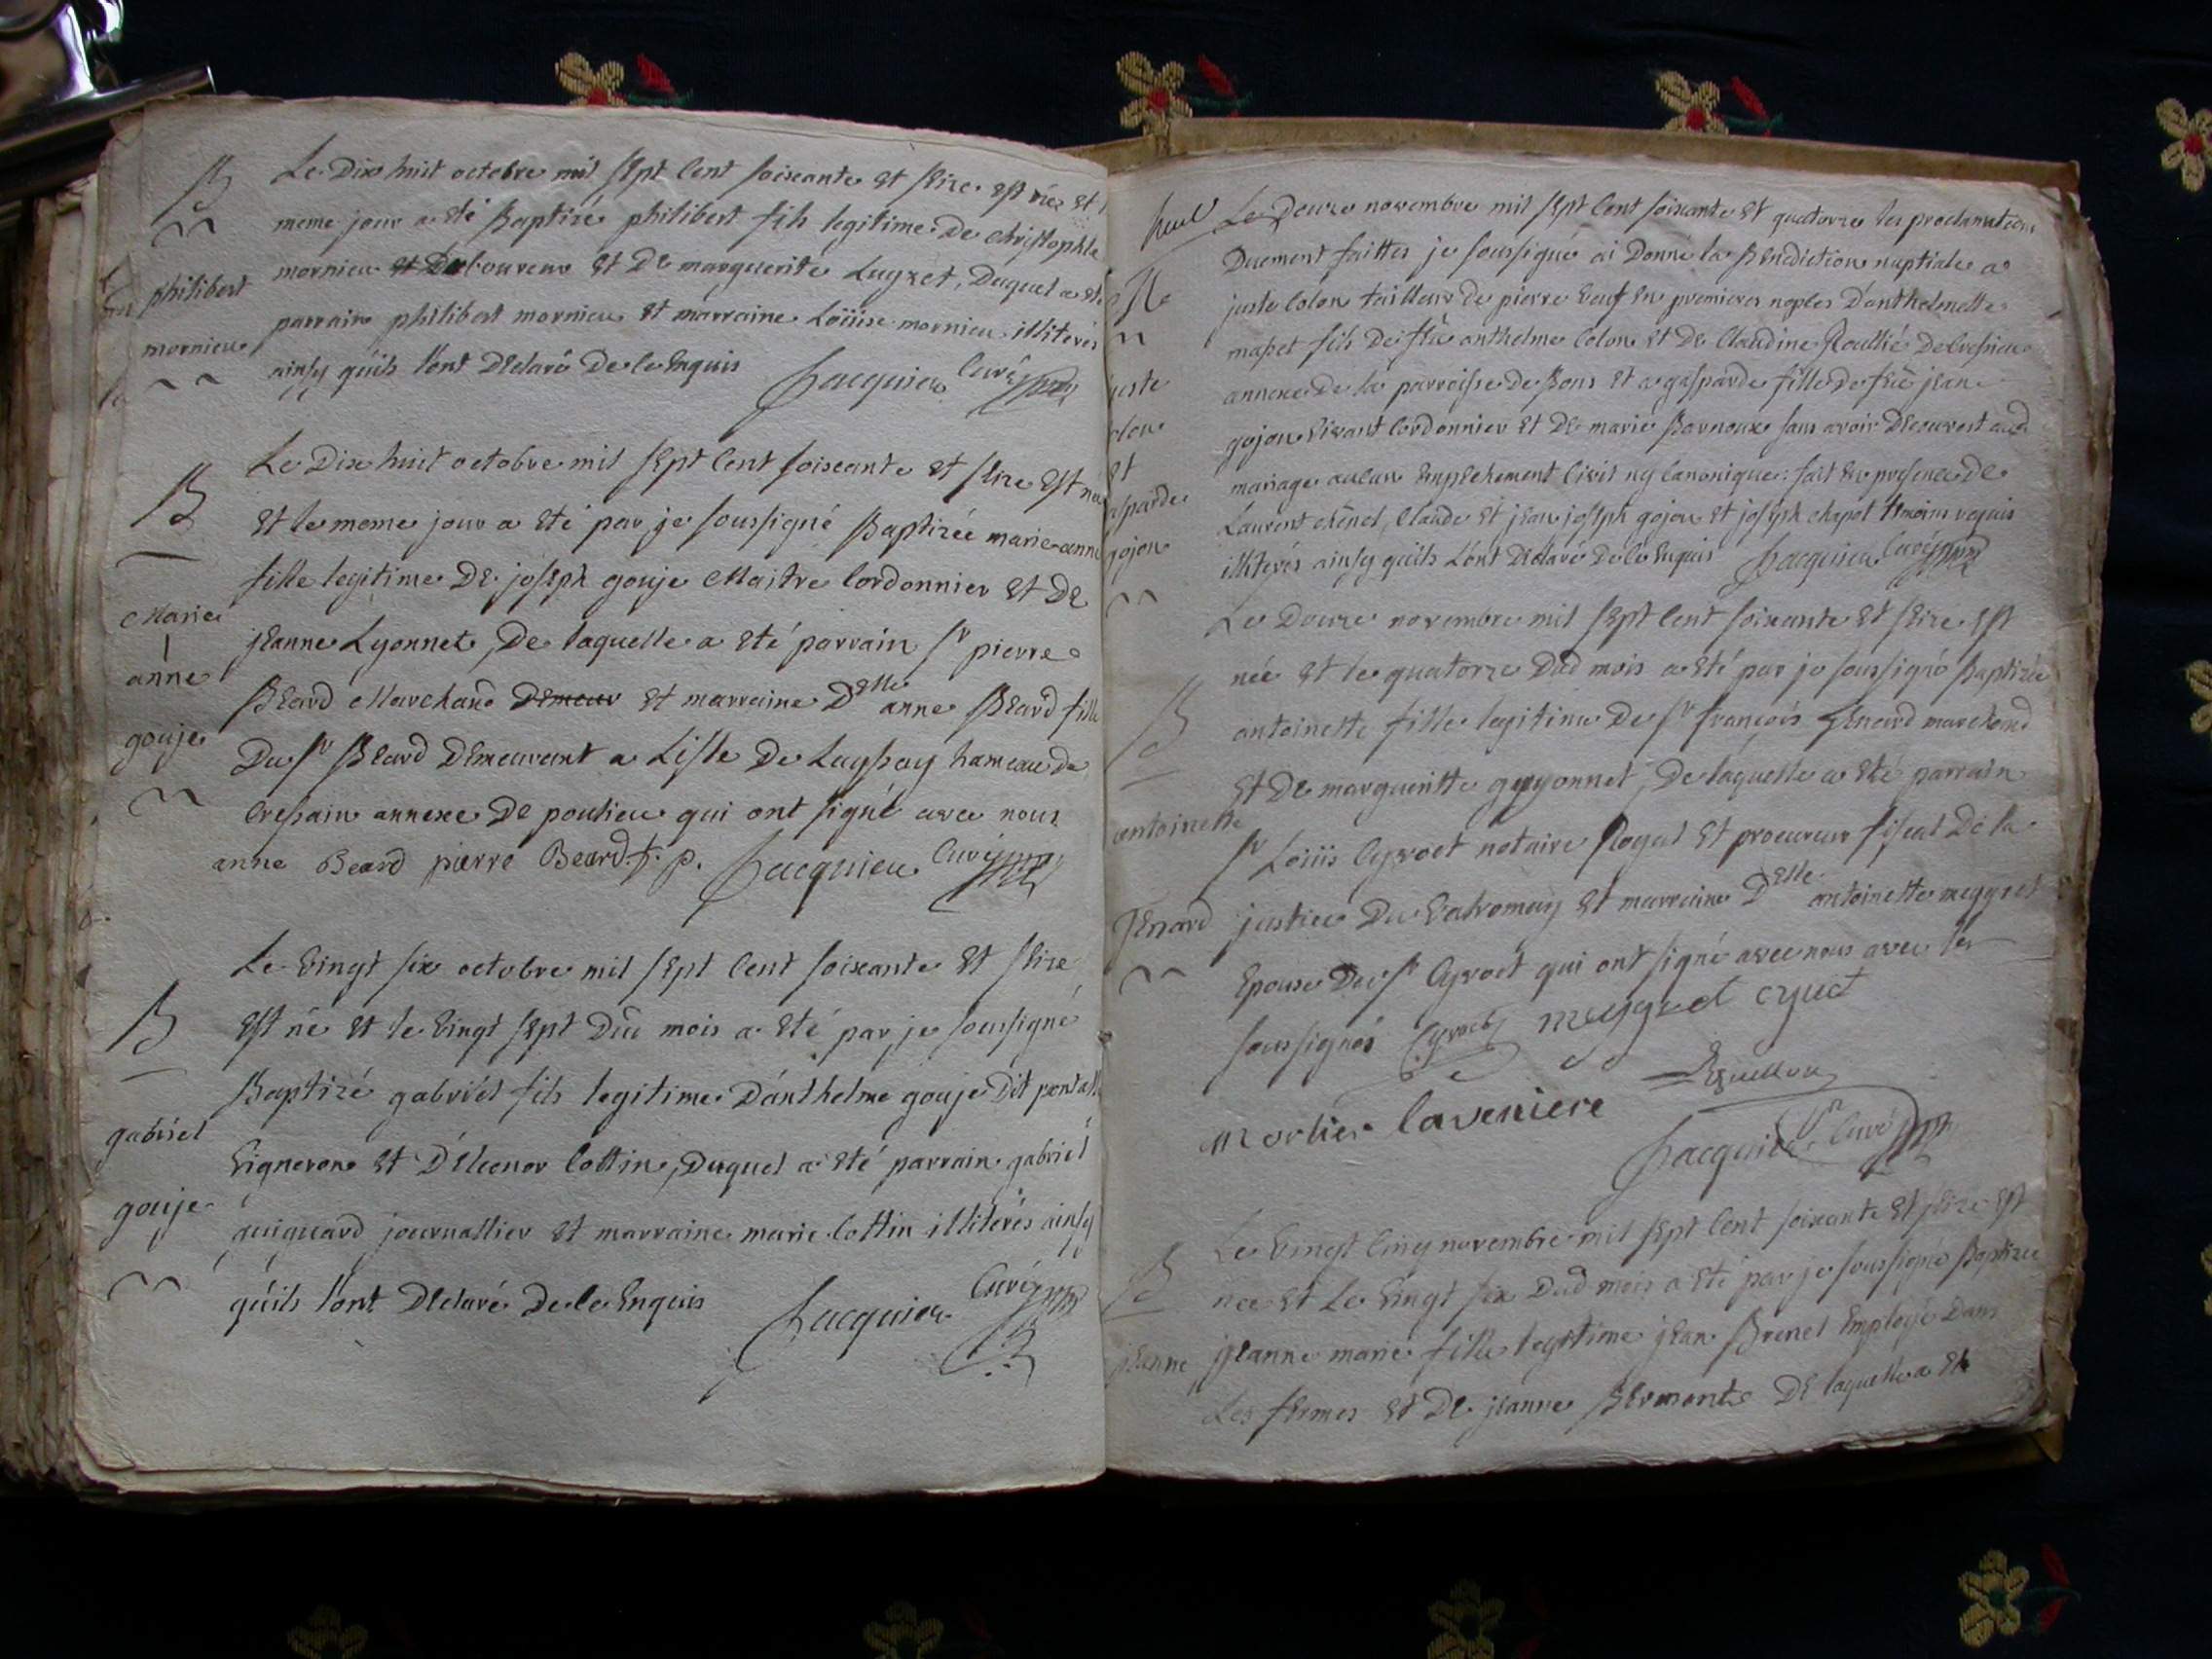 B
philibert
mornieu
Le Dix huit octobre mil sept cent soixante et seize est née et l
meme jour a eté Baptizé philibert fils legitime De christophle
mornieu et Laboureur et De marguerite Luyzet, Duquel a eté
parrain philibert mornieu et marraine Loüise mornieu illiterés
ainsy qu'ils l'ont Declaré De ce Enquis Jacquieu Curé
B
Marie
anne
gouje
Le Dix huit octobre mil sept cent soixante et seize Est née
et le meme jour a eté par je soussigné Baptizée marie anne
fille legitime De joseph gouje Maitre Cordonnier et De
jeanne Lyonnet, De laquelle a eté parrain Sr pierre
Beard Marchand Demeur et marraine Delle anne Beard fille
Du Sr Beard Demeurant a Lisle De Luyssey hameau de
Cressain annexe De poulieu qui ont signé avec nous
anne Beard pierre Beard f. p. Jacquieu Curé
B
gabriel
gouje
Le vingt six octobre mil sept cent soixante et seize
Est né et le vingt sept Du mois a eté par je soussigné
Baptizé gabriel fils legitime D'anthelme gouje Dit
vigneron et D'Eleonor Cottin, Duquel a eté parrain gabriel
guiguard journallier et marraine marie Cottin illiterés ainsy
qu'ils l'ont Declaré De ce Enquis Jacquieu Curé
M
juste
Colon
et
gasparde
gojon
Le Douze novembre mil sept cent soixante et quatorze les proclamations
Duement faittes je soussigné ai Donné la Benediction nuptiale a
juste Colon tailleur de pierre veuf en premieres nopces D'anthelmette
masset fils De feu anthelme Colon et De Claudine Roullié
annexe De la parroisse De Bons et a gasparde fille De feu jean
gojon vivant Cordonnier et De marie Barnoux sans avoir Decouvert aud
mariage aucun empechement Civil ny Canonique: fait en presence De
Laurent chênel, Claude et jean joseph gojon et joseph chapot temoins requis
illiterés ainsy qu'ils l'ont Declaré De ce Enquis Jacquieu Curé
B
antoinette
Genard
Le Douze novembre mil sept cent soixante et seize est
née et le quatorze Dud mois a eté par je soussigné Baptizée
antoinette fille legitime De Sr françois Genard marchand
et De margueritte guyonnet, De laquelle a eté parrain
Sr Loüis Cyvoct notaire Royal et procureur fiscal De la
justice Du valromey et marraine Delle antoinette meygret
Epouse Du Sr Cyvoct qui ont signé avec nous avec les
soussignés Cyvoct meygret cyvct
mortier laveniere
Jacquieu Curé
B
jeanne
Le vingt cinq novembre mil sept cent soixante et seize est
née et Le vingt six Dud mois a eté par je soussigné Baptizée
jeanne marie fille legitime jean Brenel Employé Dans
Les fermes et De jeanne Bermont De laquelle a eté